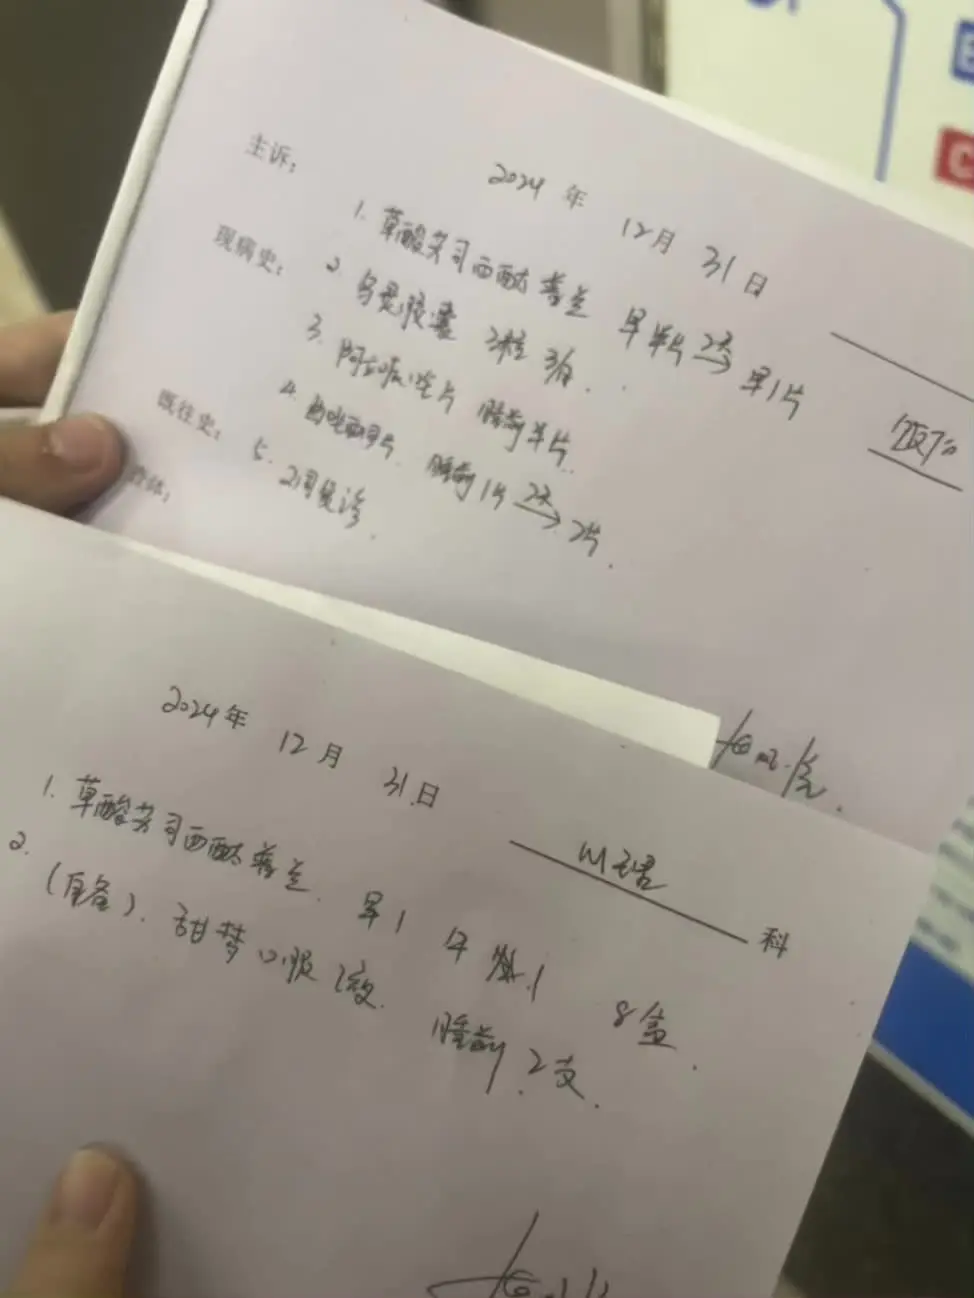 主诉:
2024 年 12月 31日
现病史:
1. 草酸艾司西酞普兰 早半片 2天→ 早1片
饭后
2. 乌灵胶囊 3粒 3/日.
3. 阿立哌唑片 睡前半片.
既往史:
4. 睡前1片 2天→ 2片.
5. 2周复诊.
2024年 12月 31日
科
1. 草酸艾司西酞普兰. 早1 午 1 8盒.
2. (自备). 甜梦口服液. 睡前2支.
C